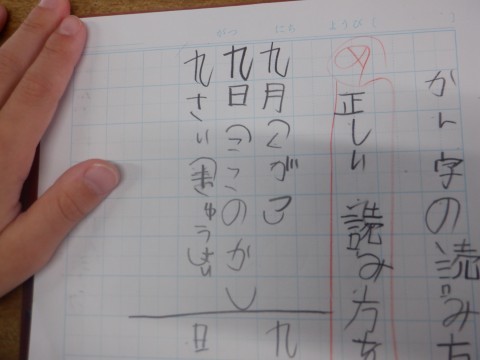 がつ にち ようび( )
かん字の読み方
め 正しい 読み方を
九月(くがつ)
九日(ここのか)
九さい(きゅうさい)
九
日